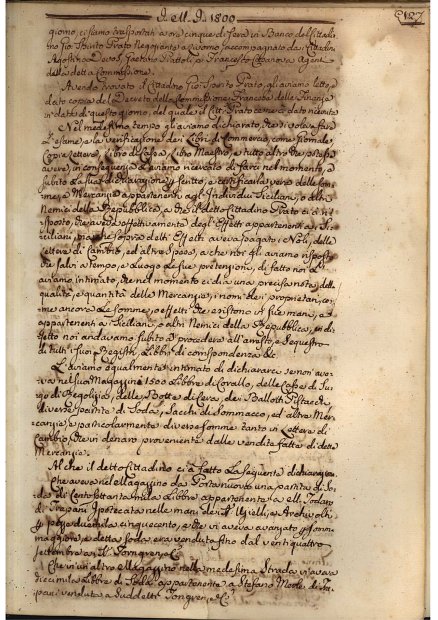 I. M. I. 1800
127
giorno, ci siamo trasportati a ore cinque di sera in Banco del Cittadino
Gio Spirito Prato Negoziante a Livorno, accompagnato da i Cittadini
Agostino Fattore e Francesco Casanova Agenti
della detta Commissione.
Avendo trovato il Cittadino Gio Spirito Prato, gli aviamo letto, e
dato copia del Decreto della Commissione Francese delle Finanze
in data di questo giorno, del quale il detto Prato ce ne à dato ricevuta
Nel medesimo tempo gli aviamo dichiarato, che si voleva fare
l'esame, e la verificazione dei Libri di Commercio, come Giornale,
Copia Lettere, Libro di Cassa, Libro Maestro, e tutto altro che potesse
avere, in conseguenza l'aviamo ricercato di farci nel momento, e
subito la sua dichiarazione in scritto, e certificata vera delle somme,
e Mercanzie appartenenti agli Individui Siciliani, o altri
Nemici della Repubblica, a che il detto Cittadino Prato ci à risposto,
che aveva effettivamente degli Effetti appartenenti a Siciliani,
ma che sopra detti Effetti aveva pagato, Noli, delle
Lettere di Cambio, ed altre Spese, a che noi gli aviamo risposto
che faria a tempo, e Luogo le sue pretenzioni, di fatto noi l'
aviamo intimato, che nel momento ci dia una precisa nota delle
qualità, e quantità delle Mercanzie, i nomi dei proprietari, come
ancora le somme, ed effetti che esistono in sue mani, e
appartenenti a Siciliani, o altri Nemici della Repubblica, in difetto
noi andavamo subito a procedere all'arresto, e sequestro
di tutti i suoi Registri, Libbri di corrispondenza &c
L'aviamo egualmente intimato di dichiararci se non aveva
nel suo Magazzino 1500 Libbre di Corallo, delle Casse di Sugo
di Regolizia, delle Botte di Cera, dei Ballotti Pistacchi,
diverse partite di Soda, Sacchi di Sommacco, ed altre Mercanzie,
e particolarmente diverse somme tanto in Lettere di
Cambio che in denaro proveniente dalle vendite fatte di dette
Mercanzie.
Al che il detto Cittadino ci à fatto la seguente dichiarazione
Che aveva nel Magazzino da Porta nuova una partita di Soda
di Cento settanta Mila Libbre appartenente a
di Trapani Ipotecata nelle mani dei Mielli, e
p pezze due mila cinquecento, e che vi aveva avanzato p somma
maggiore, e detta soda era venduta fino dal ventiquattro
settembre a Tongren, e Cº
Che in un altro Magazzino nella medesima Strada vi aveva
dieci mila Libbre di Soda appartenente a Stefano di Trapani
venduta a suddetti Tongren, e Cº